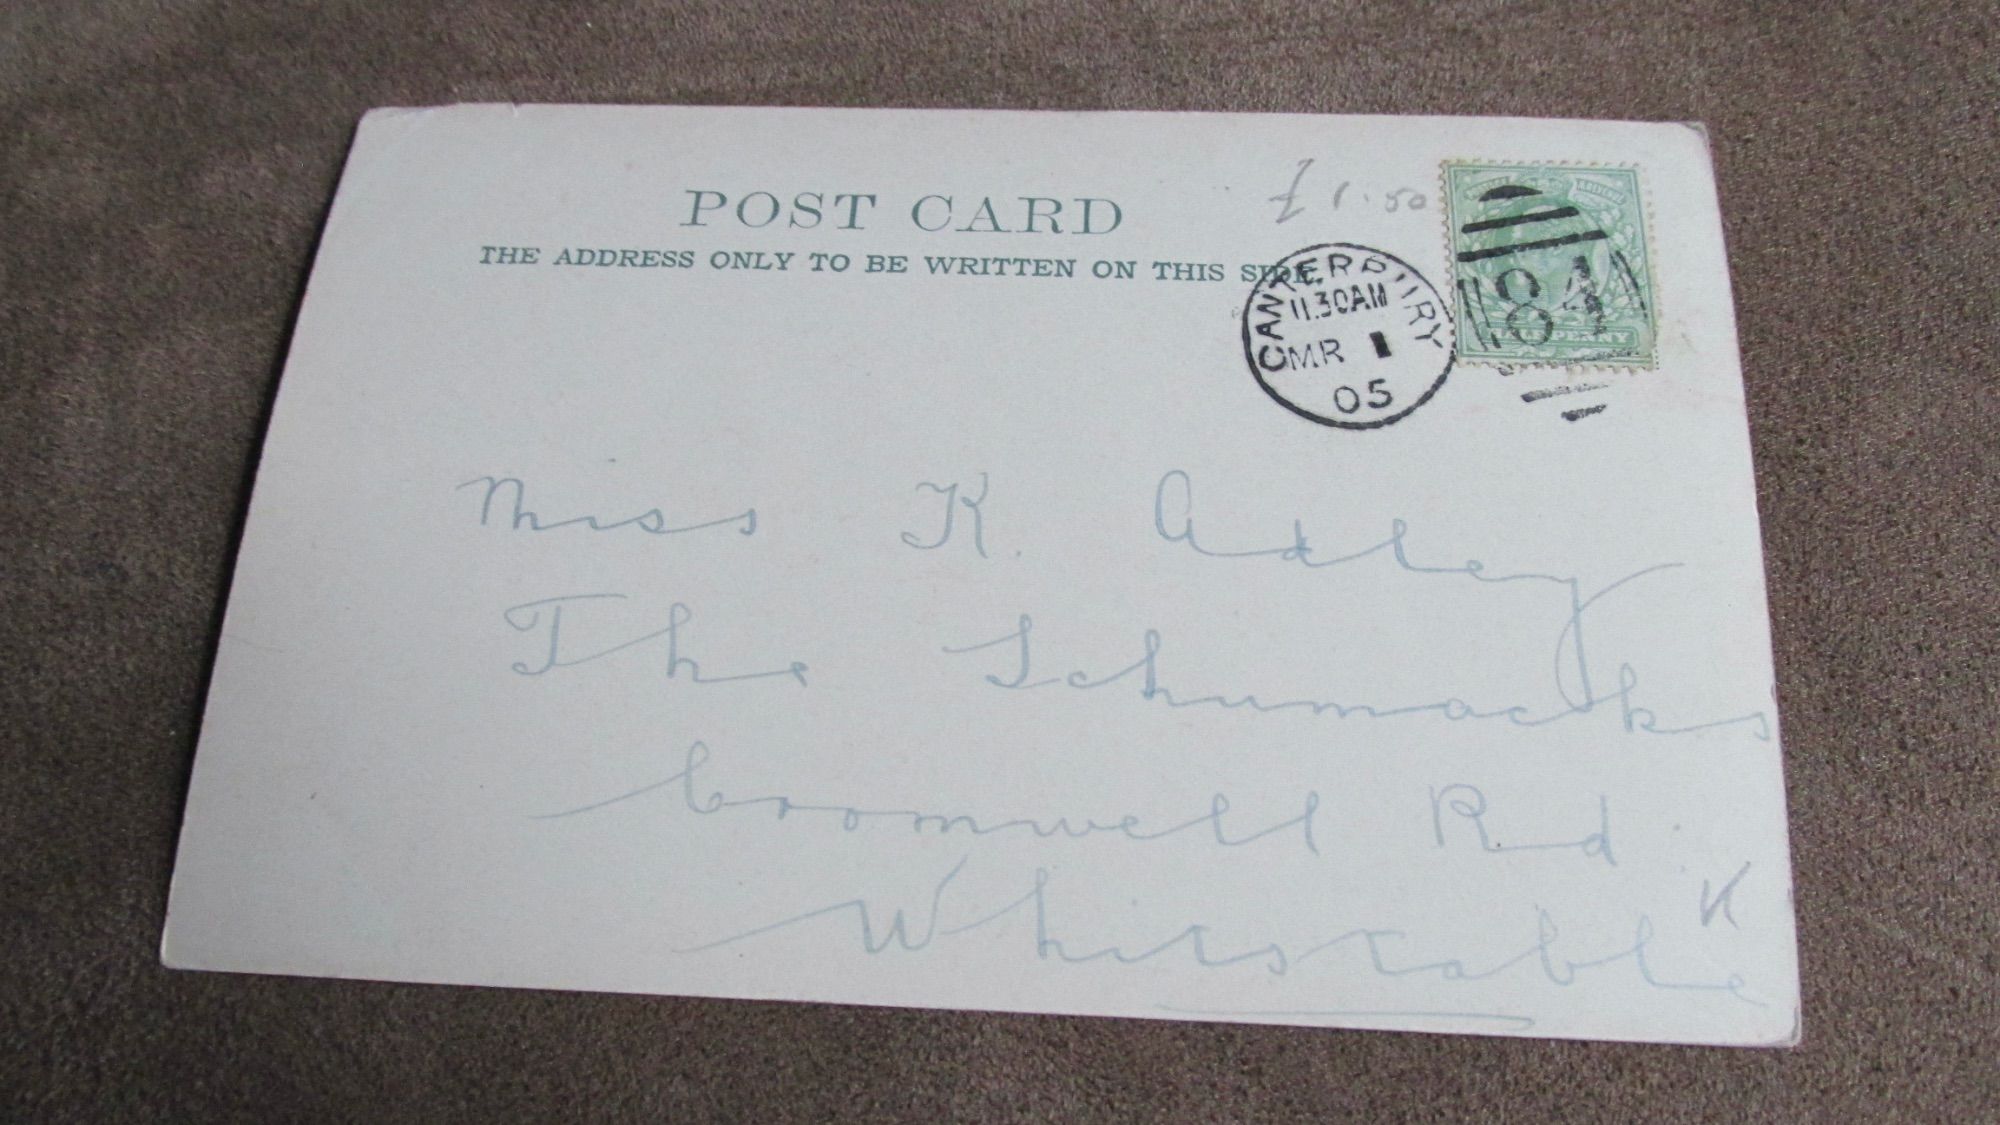 POST CARD
THE ADDRESS ONLY TO BE WRITTEN ON THIS SIDE
£1.50
CANTERBURY
11.30AM
MR 1
05
84
HALFPENNY
Miss K. Adley
The Schumacks
Cromwell Rd.
Whitstable
K